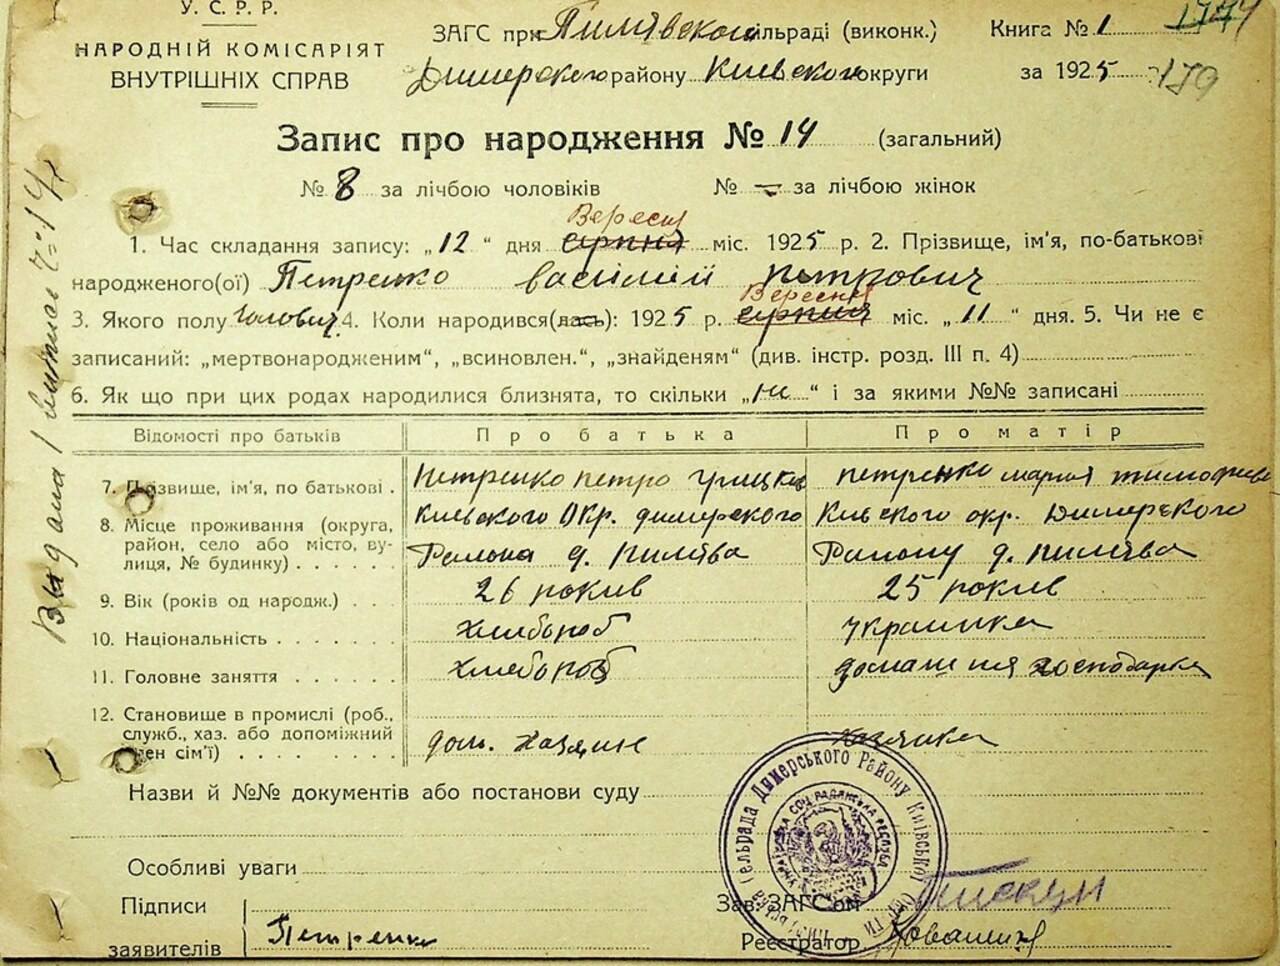 У.С.Р.Р.
НАРОДНІЙ КОМІСАРІЯТ
ВНУТРІШНІХ СПРАВ
ЗАГС при Пилявской сільраді (виконк.)
Димерского району Киевского округи
Книга № 1
за 1925
179
Запис про народження № 14 (загальний)
№ 8 за лічбою чоловіків № – за лічбою жінок
Вересня
1. Час складання запису: „12“ дня серпня міс. 1925 р. 2. Прізвище, ім'я, по-батькові
народженого(ої) Петренко Василий Петрович
Вересня
3. Якого полу Чолович. 4. Коли народився(лась): 1925 р. серпня міс. „11“ дня. 5. Чи не є
записаний: „мертвонародженим“, „всиновлен.“, „знайденям“ (див. інстр. розд. III п. 4)
6. Як що при цих родах народилися близнята, то скільки „ні“ і за якими №№ записані
Відомості про батьків Про батька Про матір
7. Прізвище, ім'я, по батькові . Петренко Петро Грицков Петренко Мария Тимофиев
8. Місце проживання (округа, Киевского Окр. Димерского Киевского окр. Димерского
район, село або місто, ву-
лиця, № будинку) Района д. Пилява Району д. Пилява
9. Вік (років од народж.) . . . 26 рокив 25 рокив
10. Національність . . . . . . . хлибороб украинка
11. Головне заняття . . . . . . хлебороб домашня господарка
12. Становище в промислі (роб.,
служб., хаз. або допоміжний
член сім'ї) . . . . . . . . . дом. хазяин хазяика
Назви й №№ документів або постанови суду
Особливі уваги
Підписи
заявителів Петренко
Зав. ЗАГС'ом Пискун
Реєстратор
Сельрада Димерського Району Київської
УКРАЇНСЬКА СОЦ. РАДЯНСЬКА РЕСПУБ.
Выдана